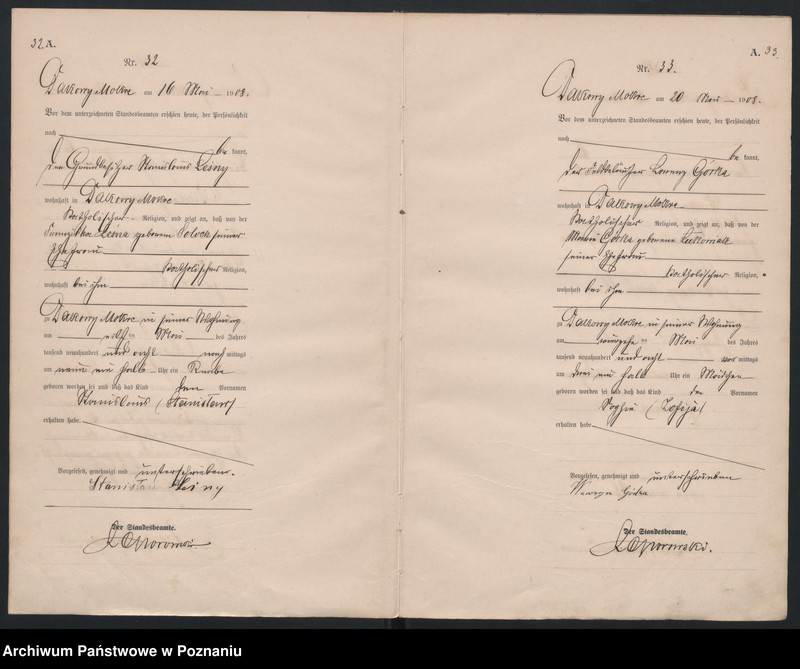 32 A.
Nr. 32
Dalkowy Mokre am 16 Mai 1908.
Vor dem unterzeichneten Standesbeamten erschien heute, der Persönlichkeit
nach
be kannt,
der Grundbesitzer Stanislaus Leiny
wohnhaft in Dalkowy Mokre
katholischer Religion, und zeigte an, daß von der
geborenen seiner
Ehefrau
katholischer Religion,
wohnhaft bei ihm
zu Dalkowy Mokre in seiner Wohnung
am elften Mai des Jahres
tausend neunhundert und acht nach mittags
um neun ein halb Uhr ein Knabe
geboren worden sei und daß das Kind den Vornamen
Stanislaus (Stanisław)
erhalten habe.
Vorgelesen, genehmigt und unterschrieben.
Stanisław Leiny
Der Standesbeamte.
A. 33
Nr. 33.
Dalkowy Mokre am 20 Mai 1908.
Vor dem unterzeichneten Standesbeamten erschien heute, der Persönlichkeit
nach
be kannt,
der Lorenz Górka
wohnhaft in Dalkowy Mokre
katholischer Religion, und zeigte an, daß von der
Górka geborene
seiner Ehefrau
katholischer Religion,
wohnhaft bei ihm
zu Dalkowy Mokre in seiner Wohnung
am Mai des Jahres
tausend neunhundert und acht vor mittags
um drei ein halb Uhr ein Mädchen
geboren worden sei und daß das Kind den Vornamen
Sophie (Zofija)
erhalten habe.
Vorgelesen, genehmigt und unterschrieben
Górka
Der Standesbeamte.
Archiwum Państwowe w Poznaniu